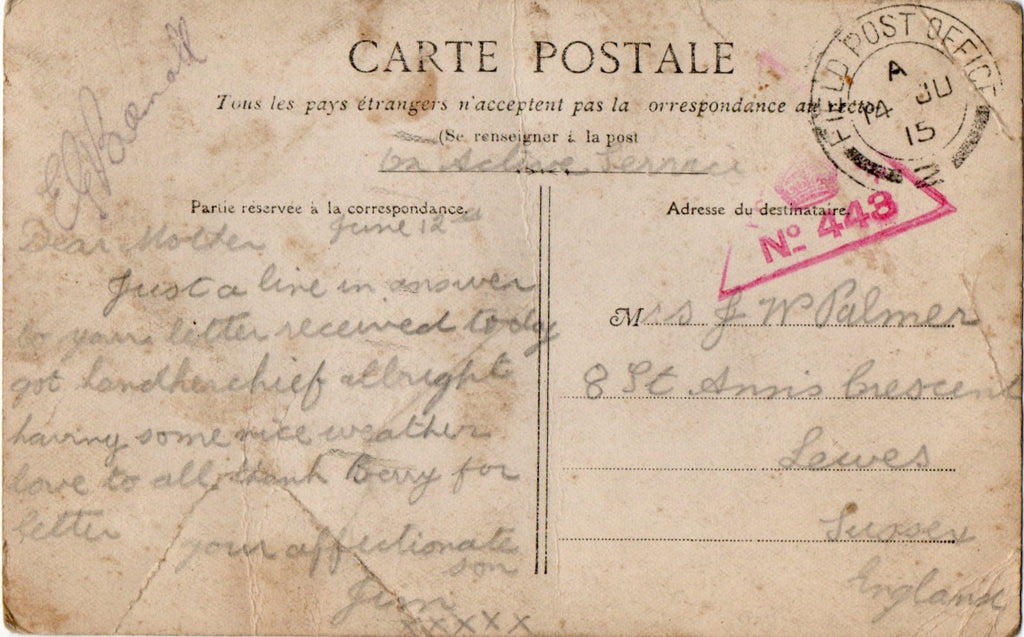 CARTE POSTALE
Tous les pays étrangers n'acceptent pas la orrespondance au recto
(Se renseigner à la post
on Active Service
FIELD POST OFFICE
A
14 JU
15
Nº 448
Partie réservée à la correspondance.
June 12th
Dear Mother
Just a line in answer
to yours letter received today
got handkerchief allright
having some nice weather
love to all, thank Berry for
letter
your affectionate
son
Jim
xxxxx
Adresse du destinataire.
Mrs J W Palmer
8 St Anns Crescent
Lewes
Sussex
England